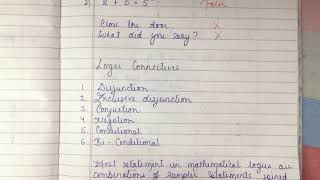 2) 2 + 3 = 5 False
Close the door. X
What did you say? X
Logic Connectives
1 Disjunction
2 Inclusive disjunction
3 Conjuction
4 Negation
5. Conditional
6. Bi - Conditional
Most statement in mathematical logic are
combinations of simpler statements joined